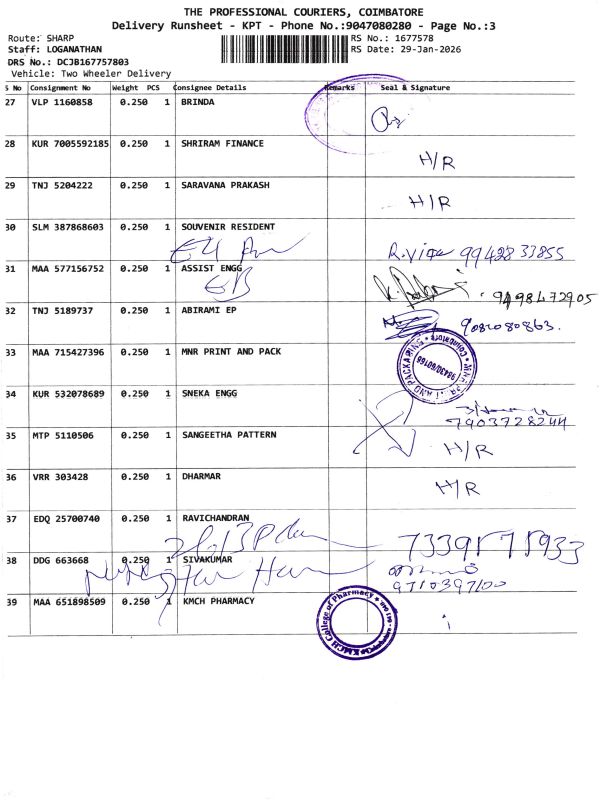 THE PROFESSIONAL COURIERS, COIMBATORE
Delivery Runsheet - KPT - Phone No.:9047080280 - Page No.:3
Route: SHARP
RS No.: 1677578
Staff: LOGANATHAN
RS Date: 29-Jan-2026
DRS No.: DCJB167757803
Vehicle: Two Wheeler Delivery
S No Consignment No Weight PCS Consignee Details Remarks Seal & Signature
27 VLP 1160858 0.250 1 BRINDA
28 KUR 7005592185 0.250 1 SHRIRAM FINANCE H/R
29 TNJ 5204222 0.250 1 SARAVANA PRAKASH H/R
30 SLM 387868603 0.250 1 SOUVENIR RESIDENT
9942833855
31 MAA 577156752 0.250 1 ASSIST ENGG
9498472905
32 TNJ 5189737 0.250 1 ABIRAMI EP
33 MAA 715427396 0.250 1 MNR PRINT AND PACK
34 KUR 532078689 0.250 1 SNEKA ENGG
7903728244
35 MTP 5110506 0.250 1 SANGEETHA PATTERN H/R
36 VRR 303428 0.250 1 DHARMAR H/R
37 EDQ 25700740 0.250 1 RAVICHANDRAN
38 DDG 663668 0.250 1 SIVAKUMAR
9710397100
39 MAA 651898509 0.250 1 KMCH PHARMACY
KMCH College of Pharmacy